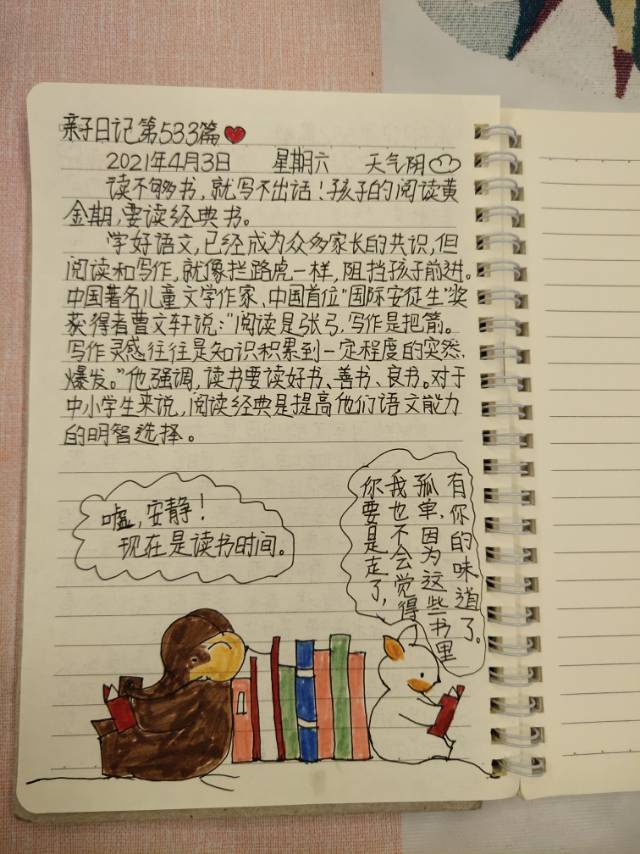 亲子日记第533篇
2021年4月3日 星期六 天气阴
读不够书，就写不出话！孩子的阅读黄
金期，要读经典书。
学好语文，已经成为众多家长的共识，但
阅读和写作，就像拦路虎一样，阻挡孩子前进。
中国著名儿童文学作家、中国首位“国际安徒生”奖
获得者曹文轩说：“阅读是张弓，写作是把箭。
写作灵感往往是知识积累到一定程度的突然
爆发。”他强调，读书要读好书、善书、良书。对于
中小学生来说，阅读经典是提高他们语文能力
的明智选择。
嘘，安静！
现在是读书时间。
你要是走了，
我也不会觉得
孤单，因为这些书里
有你的味道了。